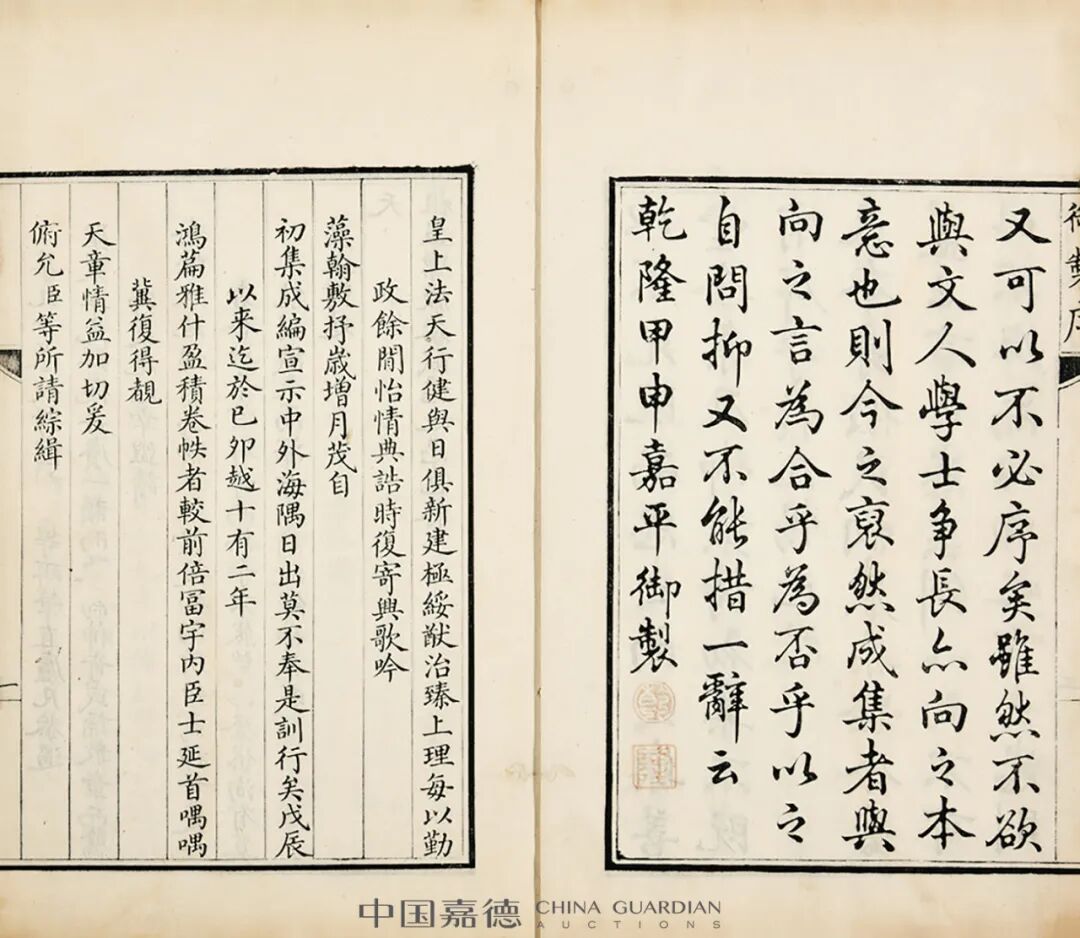 御製序
又可以不必序矣雖然不欲
與文人學士爭長亦向之本
意也則今之裒然成集者與
向之言為合乎為否乎以之
自問抑又不能措一辭云
乾隆甲申嘉平御製
皇上法天行健與日俱新建極綏猷治臻上理每以勤
政餘閒怡情典誥時復寄興歌吟
藻翰敷抒歲增月茂自
初集成編宣示中外海隅日出莫不奉是訓行矣戊辰
以来迄於己卯越十有二年
鴻篇雅什盈積卷帙者較前倍富宇内臣士延首喁喁
冀復得覩
天章情益加切爰
俯允臣等所請綜緝
中国嘉德 CHINA GUARDIAN
AUCTIONS